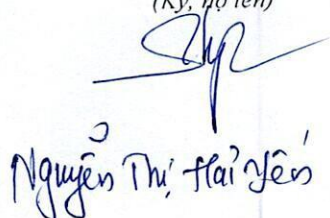 (Ký, họ tên)
Nguyễn Thị Hải Yến